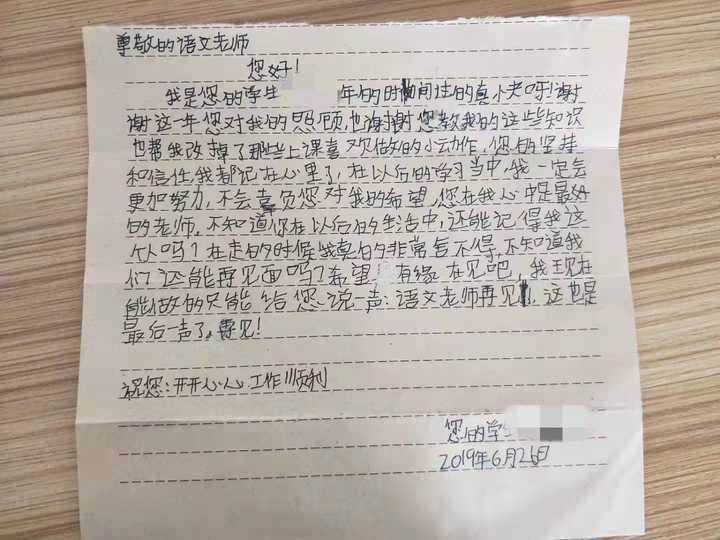 尊敬的语文老师
您好！
我是您的学生 年的时间过的真快呀！谢
谢这一年您对我的照顾，也谢谢您教我的这些知识
也帮我改掉了那些上课喜欢做的小动作，您的坚持
和信任，我都记在心里了，在以后的学习当中，我一定会
更加努力，不会辜负您对我的希望，您在我心中是最好
的老师。不知道你在以后的生活中，还能记得我这
个人吗？在走的时候我真的非常舍不得，不知道我
们还能再见面吗？希望！有缘在见吧，我现在
能做的只能给您说一声：语文老师再见，这也是
最后一声了，再见！
祝您：开开心心 工作顺利
您的学生
2019年6月25日